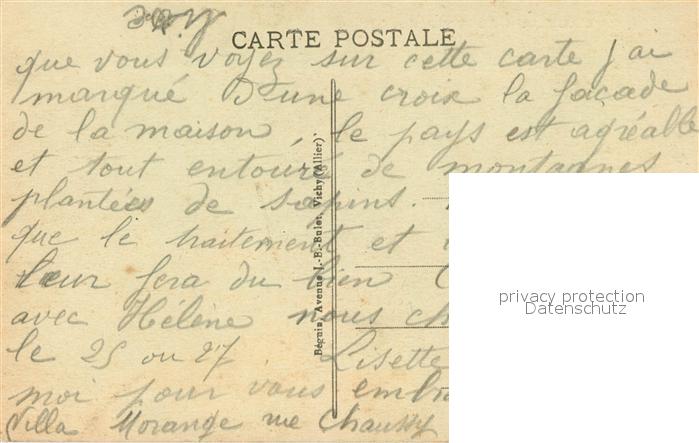 CARTE POSTALE
que vous voyez sur cette carte j'ai
marqué d'une croix la façade
de la maison, le pays est agréable
et tout entouré de montagnes
plantées de sapins.
que le traitement et
leur fera du bien
avec Hélène nous
le 25 ou 27 Lisette
moi pour vous
Villa Morange rue Chaussy
Béguin, Avenue J.-B.-Bulot, Vichy (Allier)
privacy protection
Datenschutz